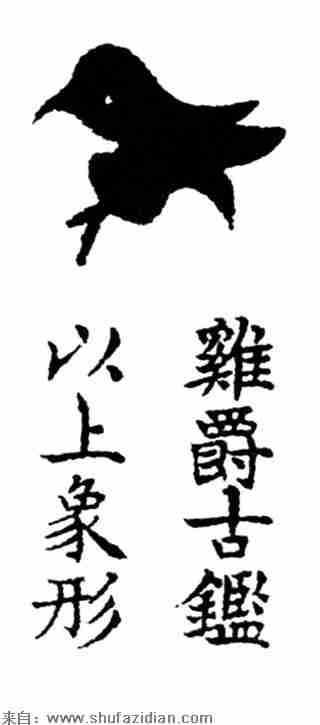 雞爵古鑑
以上象形
来自：www.shufazidian.com